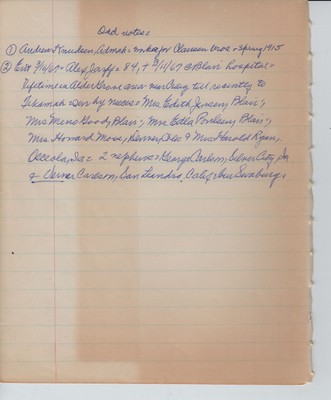 Odd notes:
① Andrew Knudsen, Admah = worked for Clausen bros = spring 1915
② Ent 3/16/67 = Alex, 84, + 3/11/67 @ Blair hospital =
lifetime in Alder Grove area near Craig till recently to
Tekamah surv by nieces = Mrs Edith Jensen, Blair;
Mrs Meno Hoody Blair; Mrs Etta Poulsen, Blair;
Mrs Howard Mose, Denver, Colo & Mrs Harold Ryan,
Osceola, Ia = 2 nephews = George Carlson, Silver City, Ia
& Verner Carlson, San Leandro, Calif =